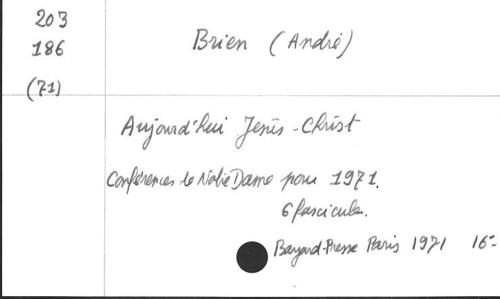 203
186
(71)
Brien (André)
Aujourd'hui Jésus-Christ
Conférences de Notre Dame pour 1971.
6 fascicules.
Bayard-Presse Paris 1971 16°